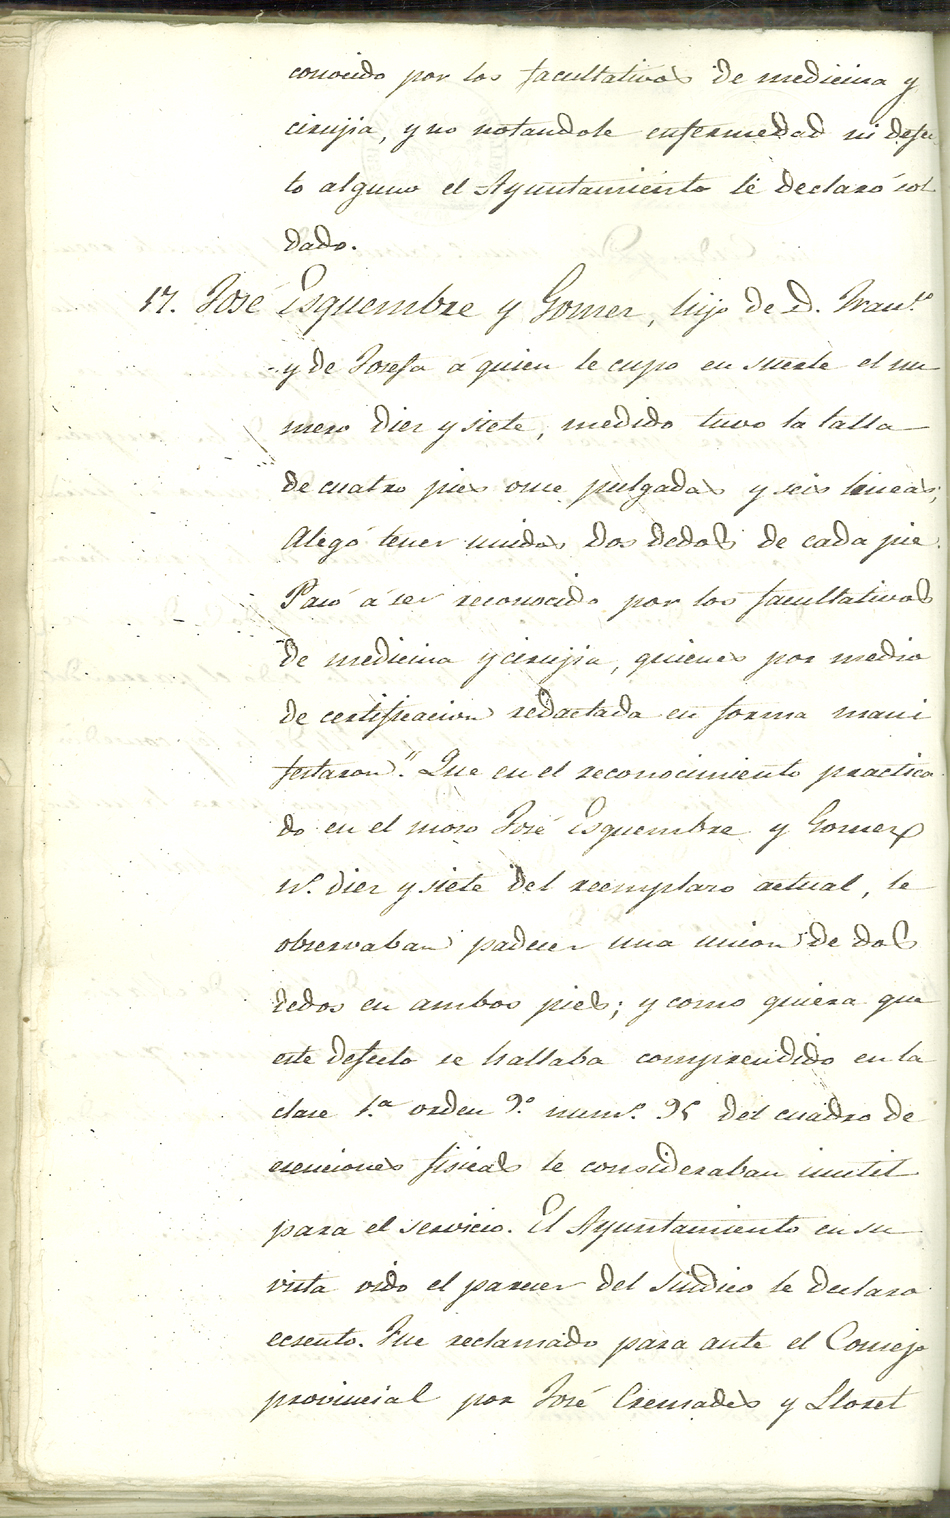 conocido por los facultativos de medicina y
cirujia, y no notandole enfermedad ni defec
to alguno el Ayuntamiento le declaró sol
dado.
17. José Esquembre y Gomez, hijo de D. Fran.co
y de Josefa á quien le cupo en suerte el nu
mero diez y siete, medido tuvo la talla
de cuatro pies once pulgadas y seis lineas;
Alegó tener unidos dos dedos de cada pie.
Pasó á ser reconocido por los facultativos
de medicina y cirujia, quienes por medio
de certificacion redactada en forma mani
festaron." Que en el reconocimiento practica
do en el mozo José Esquembre y Gomez
n.º diez y siete del reemplazo actual, le
observaban padecer una union de dos
dedos en ambos pies; y como quiera que
este defecto se hallaba comprendido en la
clase 1.ª orden 9.º num.º 95 del cuadro de
esenciones fisicas le consideraban inutil
para el servicio. El Ayuntamiento en su
vista oido el parecer del Sindico le declaro
ecsento. Fue reclamado para ante el Consejo
provincial por José Cremades y Lloret